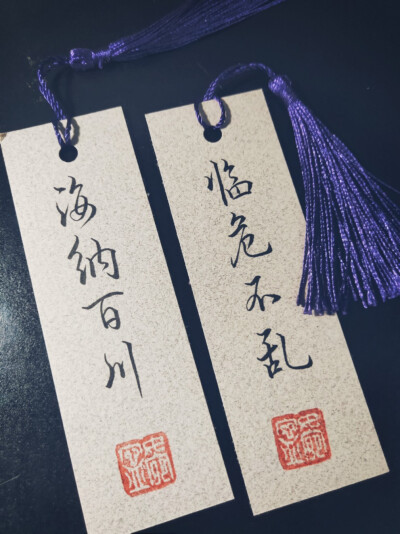 海纳百川
临危不乱